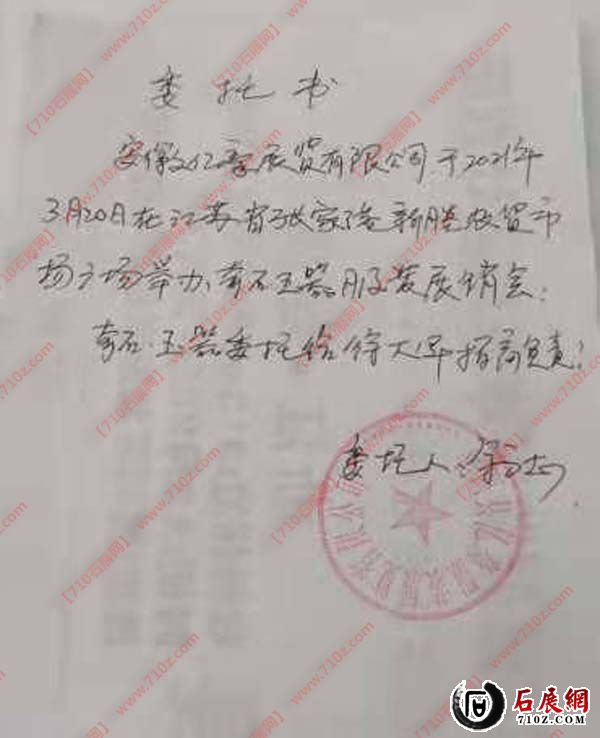 委托书
安徽亿 展贸有限公司于2021年
3月20日在江苏省张家港新胜农贸市
场广场举办、奇石玉器服装展销会:
奇石·玉器委托给徐大军招商负责!
委托人:
【710石展网】www.710z.com
石展網
710Z.COM